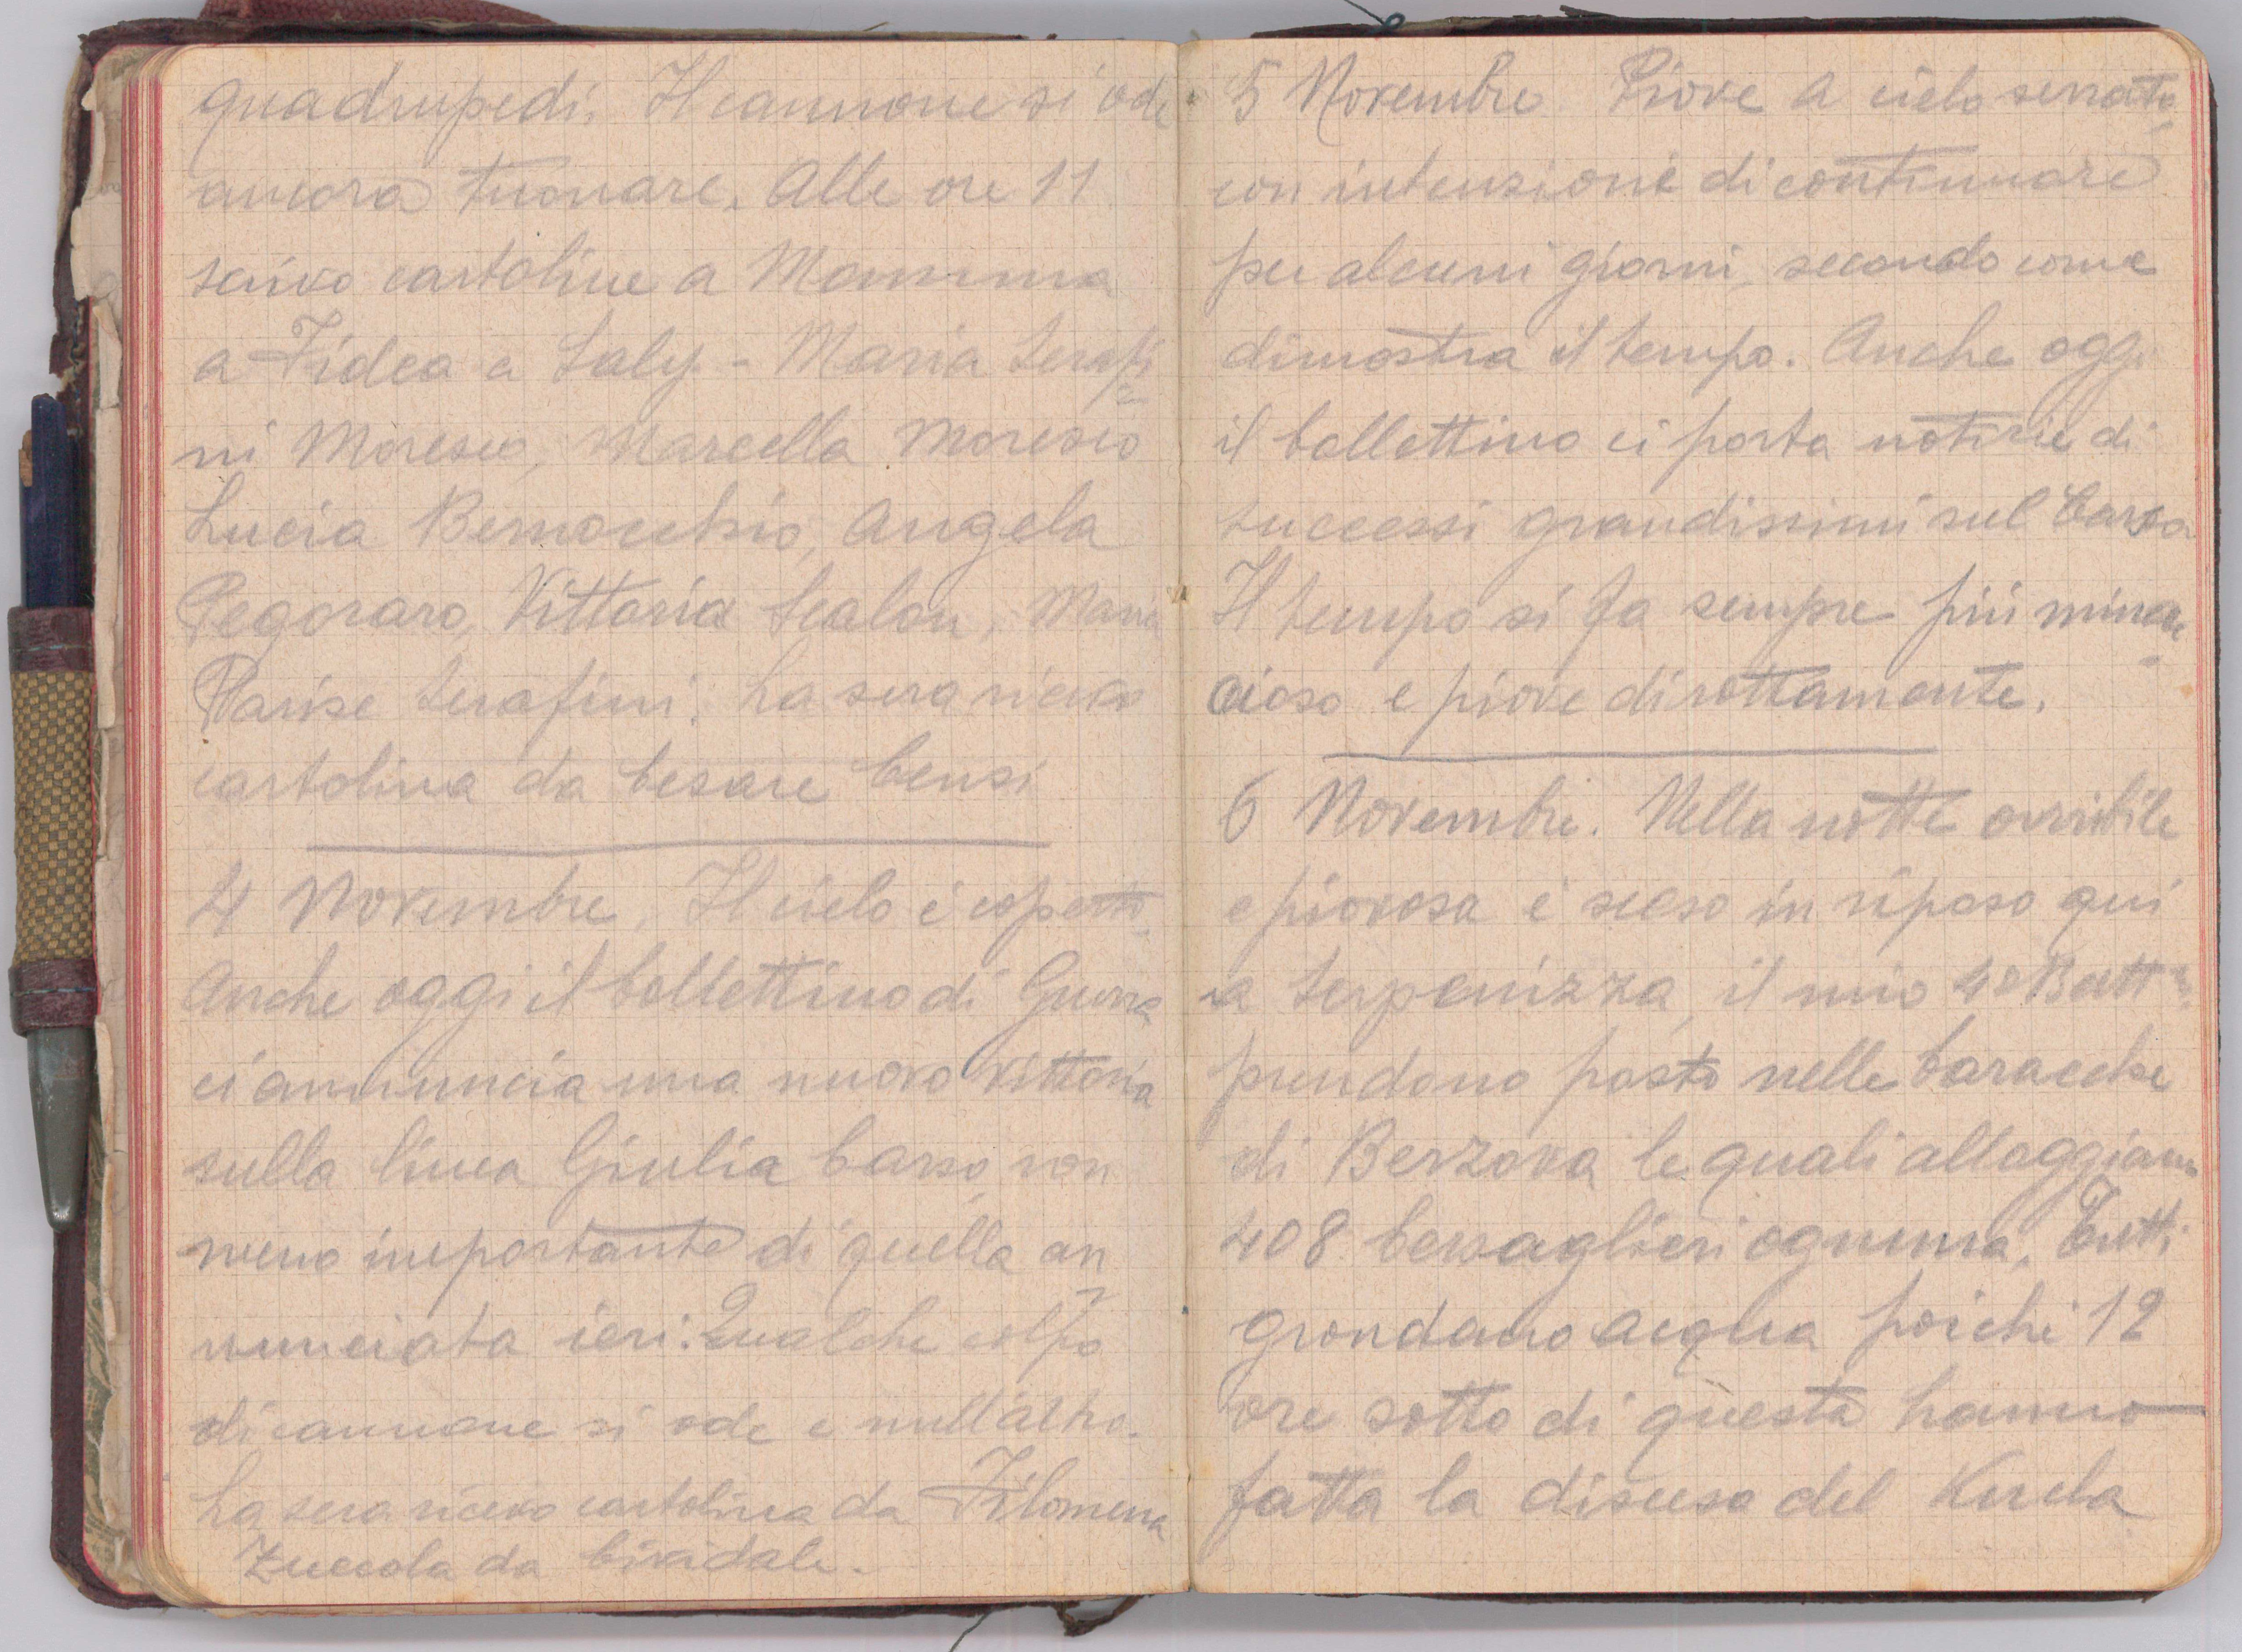 quadrupedi. Il cannone si ode
ancora tuonare. Alle ore 11
scrivo cartoline a Mamma
a Fidea a Saly - Maria Serafi=
ni Moresco, Marcella Moresco
Lucia Bernocchio, Angela
Pegoraro, Vittoria Scalon, Maria
Parise Serafini. La sera ricevo
cartolina da Cesare Censi
4 Novembre. Il cielo è coperto.
Anche oggi il bollettino di Guerra
ci annuncia una nuova vittoria
sulla linea Giulia Carso, non
meno importante di quella an=
nunciata ieri. Qualche colpo
di cannone si ode e null'altro.
La sera ricevo cartolina da Filomena
Zuccola da Cividale.
5 Novembre Piove a cielo serrato
con intenzione di continuare
per alcuni giorni, secondo come
dimostra il tempo. Anche oggi
il bollettino ci porta notizie di
successi grandissimi sul Carso
Il tempo si fa sempre più minac=
cioso e piove dirottamente.
6 Novembre. Nella notte orribile
e piovosa è sceso in riposo qui
a Serpenizza, il mio 4º Battn.
prendono posto nelle baracche
di Berzova le quali alloggiano
408 bersaglieri ognuna. Tutti
grondano acqua poichè 12
ore sotto di questa hanno
fatta la discesa del Kucla